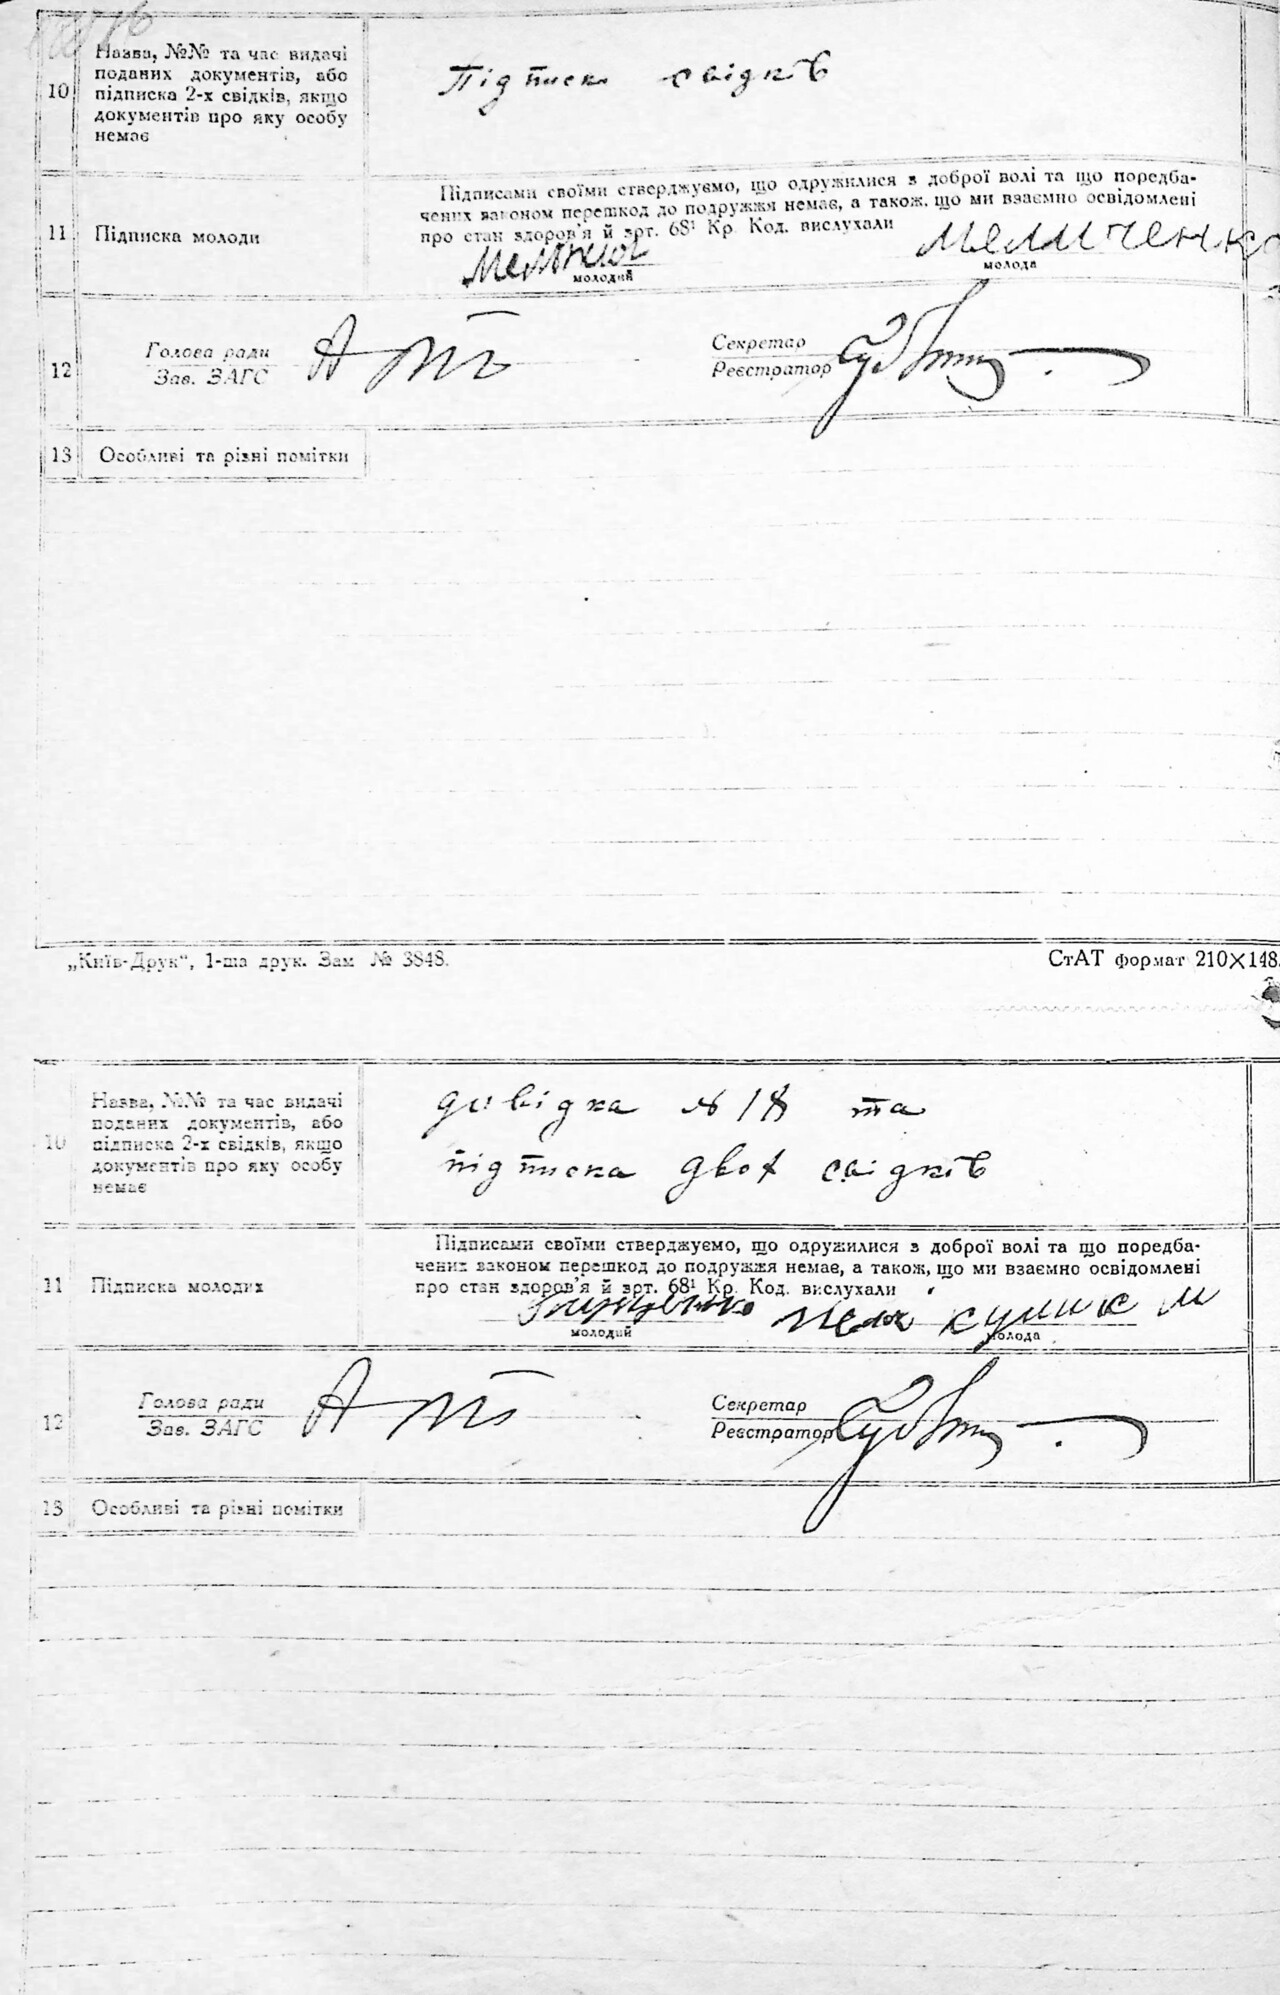 10
Назва, №№ та час видачі
поданих документів, або
підписка 2-х свідків, якщо
документів про яку особу
немає
Підписка свідків
11
Підписка молоди
Підписами своїми стверджуємо, що одружилися з доброї волі та що поредба-
чених законом перешкод до подружжя немає, а також, що ми взаємно освідомлені
про стан здоров'я й арт. 68¹ Кр. Код. вислухали
молодий
Мельниченко
молода
12
Голова ради
Зав. ЗАГС
Секретар
Реєстратор
13
Особливі та різні помітки
„Київ-Друк“, 1-ша друк. Зам № 3848.
СтАТ формат 210×148.
10
Назва, №№ та час видачі
поданих документів, або
підписка 2-х свідків, якщо
документів про яку особу
немає
довідка № 18 та
підписка двох свідків
11
Підписка молодих
Підписами своїми стверджуємо, що одружилися з доброї волі та що поредба-
чених законом перешкод до подружжя немає, а також, що ми взаємно освідомлені
про стан здоров'я й арт. 68¹ Кр. Код. вислухали
кулик м
молодий
молода
12
Голова ради
Зав. ЗАГС
Секретар
Реєстратор
13
Особливі та різні помітки